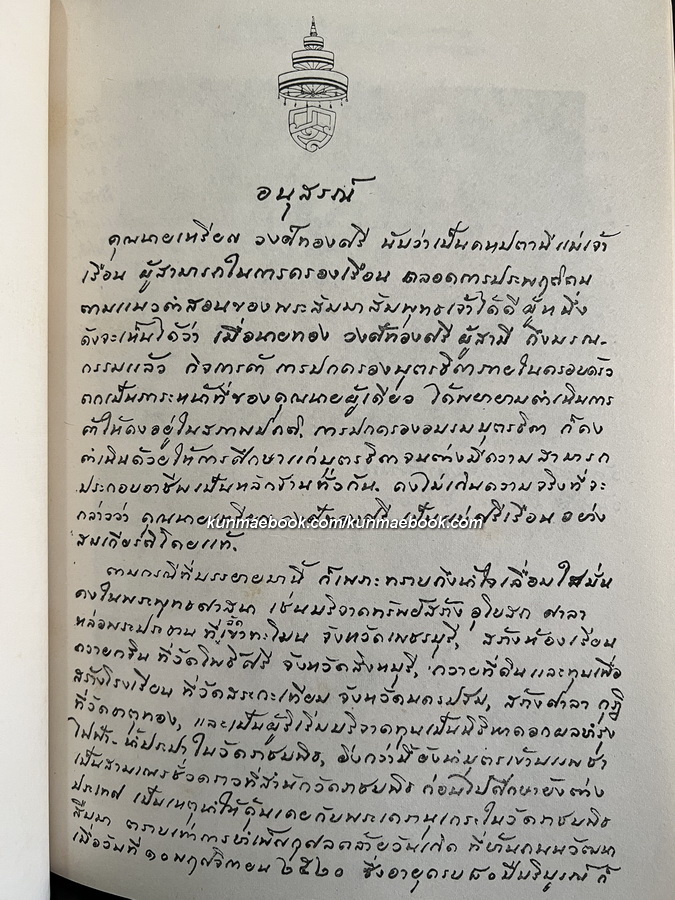 อนุสรณ์
คุณนายเหรียญ วงศ์ทองศรี นับว่าเป็นคหปตานีแม่เจ้า
เรือน ผู้สามารถในการครองเรือน ตลอดการประพฤติตน
ตามแนวคำสอนของพระสัมมาสัมพุทธเจ้าได้ดี ผู้หนึ่ง
ดังจะเห็นได้ว่า เมื่อนายทอง วงศ์ทองศรี ผู้สามี ถึงมรณ-
กรรมแล้ว กิจการค้า การปกครองบุตรธิดาภายในครอบครัว
ตกเป็นภาระหน้าที่ของคุณนายผู้เดียว ได้พยายามดำเนินการ
ค้าให้คงอยู่ในสภาพปกติ. การปกครองอบรมบุตรธิดา ก็คง
ดำเนินด้วยให้การศึกษาแก่บุตรธิดาจนต่างมีความสามารถ
ประกอบอาชีพเป็นหลักฐานทั่วกัน. คงไม่เกินความจริงที่จะ
กล่าวว่า คุณนายเหรียญ วงศ์ทองศรี เป็นแม่ศรีเรือน อย่าง
kunmaebook.com/kunmaebook.com
สมเกียรติโดยแท้.
ตามกรณีที่บรรยายมานี้ ก็เพราะทราบถึงน้ำใจเลื่อมใสมั่น
คงในพระพุทธศาสนา เช่นบริจาคทรัพย์สร้าง อุโบสถ ศาลา
หล่อพระประธาน ที่วัดเขาทะโมน จังหวัดเพชรบุรี, สร้างห้องเรียน
ถวายกฐิน ที่วัดโพธิ์ศรี จังหวัดสิงหบุรี, ถวายที่ดินและทุนเพื่อ
สร้างโรงเรียน ที่วัดสระกะเทียม จังหวัดนครปฐม, สร้างศาลา กุฏิ
ที่วัดธาตุทอง, และเป็นผู้ริเริ่มบริจาคทุนเป็นนิธิหาดอกผลบำรุง
ไฟฟ้า-น้ำประปา ในวัดราชบพิธ, ยิ่งกว่านี้ยังนำบุตรเข้าบรรพชา
เป็นสามเณรชั่วคราวที่สำนักวัดราชบพิธ ก่อนไปศึกษายังต่าง
ประเทศ เป็นเหตุนำให้คุ้นเคยกับพระเถรานุเถระในวัดราชบพิธ
สืบมา ตราบเท่าการบำเพ็ญกุศลคล้ายวันเกิด ที่
เมื่อวันที่ ๑๐ พฤศจิกายน ๒๕๒๐ ซึ่งอายุครบ ๘๐ ปีบริบูรณ์ ก็